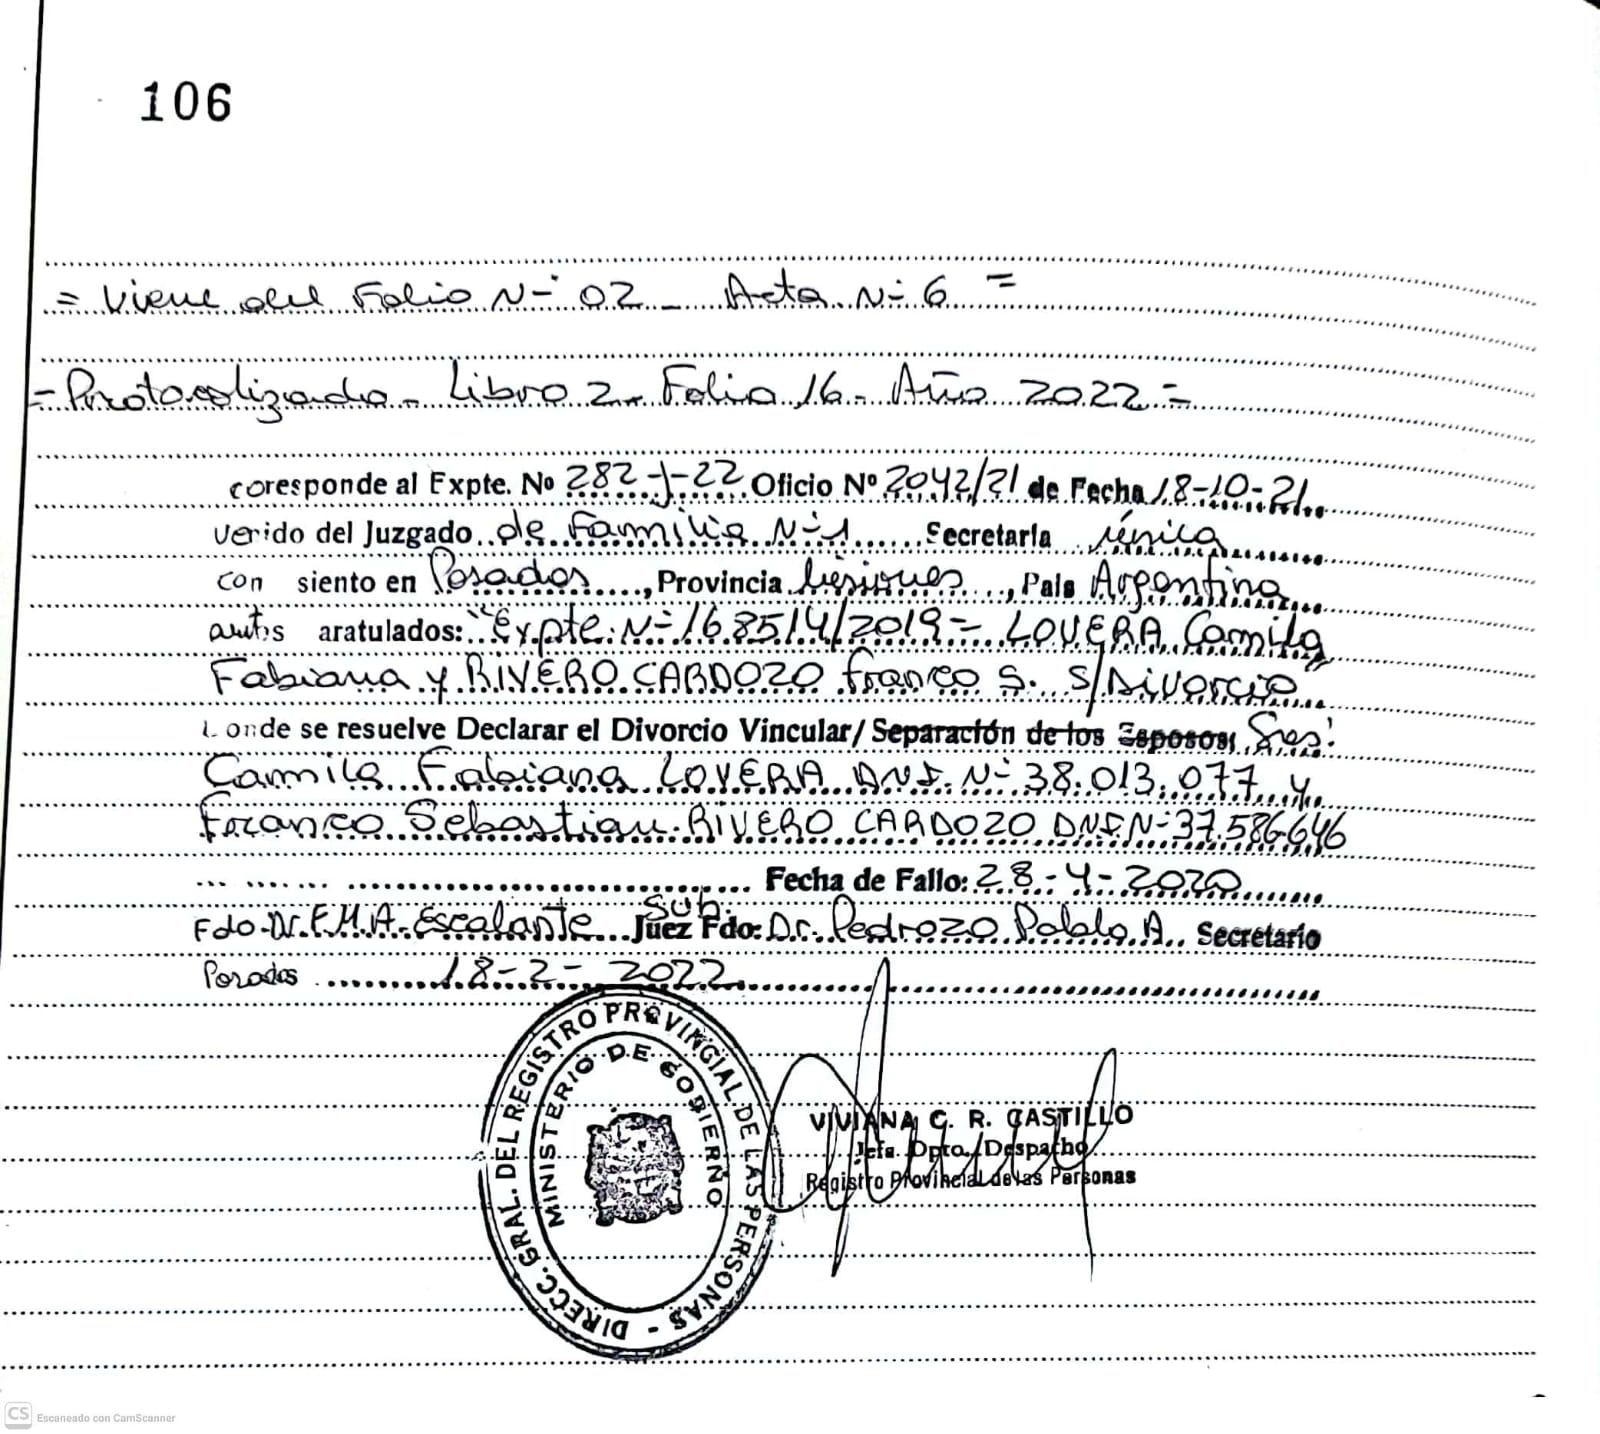 106
= Viene del Folio N° 02 - Acta N° 6 =
- Protocolizado - Libro 2 - Folio 16 - Año 2022 -
coresponde al Expte. No 282-J-22 Oficio Nº 2042/21 de Fecha 18-10-21
verido del Juzgado de Familia N° 1 Secretaria única
con siento en Posadas, Provincia Misiones, Pais Argentina
autos aratulados: "Expte. N° 168514/2019 - LOVERA Camila
Fabiana y RIVERO CARDOZO Franco S. s/Divorcio
Londe se resuelve Declarar el Divorcio Vincular/ Separación de los Esposos, Sres:
Camila Fabiana LOVERA DNI. N° 38.013.077 y
Franco Sebastian RIVERO CARDOZO DNI N° 37.586.646
Fecha de Fallo: 28-4-2020
Fdo. Dr. F.M.A. Escalante Sub. Juez Fdo: Dr. Pedrozo Pablo A. Secretario
Posadas 18-2-2022
DIRECC. GRAL. DEL REGISTRO PROVINCIAL DE LAS PERSONAS -
MINISTERIO DE GOBIERNO
VIVIANA C. R. CASTILLO
Jefa Dpto. Despacho
Registro Provincial de las Personas
CS Escaneado con CamScanner